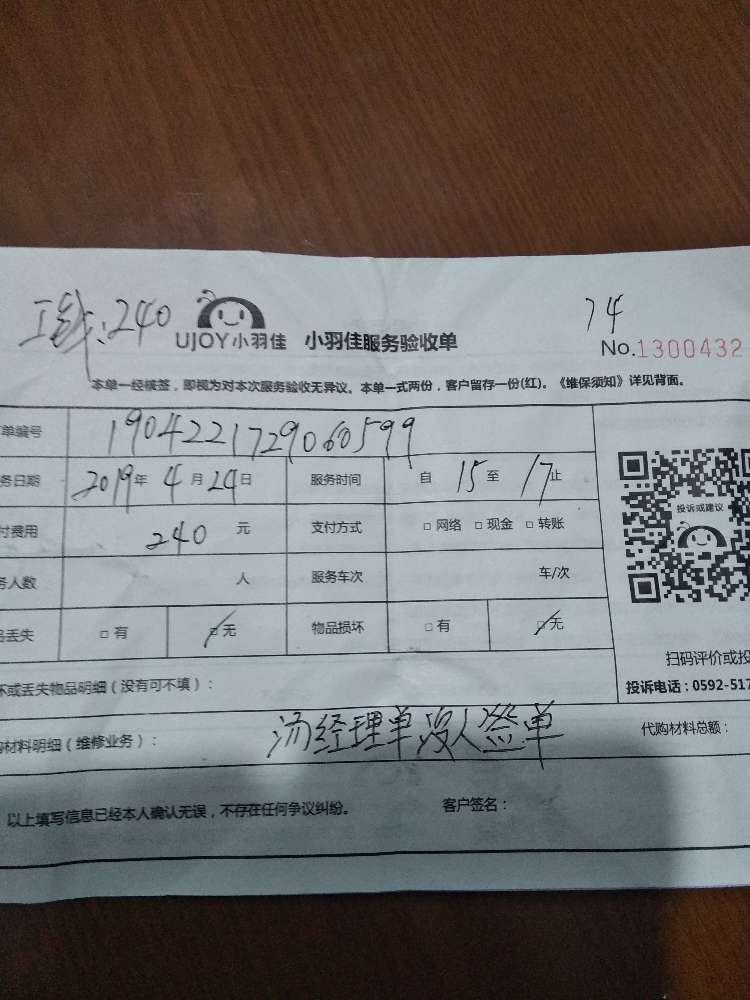 工钱:240 UJOY小羽佳 小羽佳服务验收单 74
No.1300432
本单一经核签，即视为对本次服务验收无异议。本单一式两份，客户留存一份(红)。《维保须知》详见背面。
单编号 1904221729060599
务日期 2019年 4月 24日 服务时间 自 15 至 17 止
付费用 240 元 支付方式 □ 网络 □ 现金 □ 转账
投诉或建议
务人数 人 服务车次 车/次
品丢失 □ 有 □ 无 物品损坏 □ 有 □ 无
扫码评价或投
坏或丢失物品明细（没有可不填）：
投诉电话：0592-517
购材料明细（维修业务）： 汤经理单没人签单 代购材料总额：
以上填写信息已经本人确认无误，不存在任何争议纠纷。 客户签名：